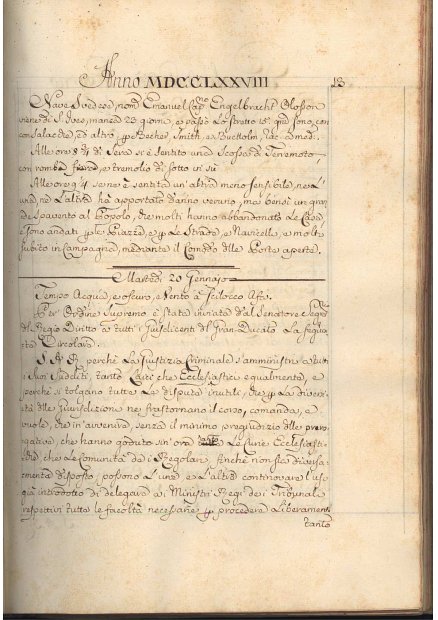 Anno MDCCLXXVIII 13
Nave Svedese, nom. Emanuel Capno Engelbracht Olosson
viene di S. Ives, manca 23 giorni, e passò lo stretto 15. qui sono, con
con Salacche, ed altro p Becher, Smith, e
Alle ore 8 3/4 di Sera si è sentito una Scossa di Terremoto
con romba fiera, e tremolio di sotto in su
Alle ore 9 1/4 se ne è sentita un'altra meno sensibile, ne l'
una, ne l'altra ha apportato danno veruno, ma bensì un gran
de Spavento al Popolo, che molti hanno abbandonato le Case
e sono andati p le Piazze, e p le Strade, e Navicelli, e molti
subito in Campagna, mediante il Comodo dlle Porte aperte.
Martedì 20 Gennajo
Tempo Acqua, e oscuro, Vento a Scilocco Afa.
Per Ordine Supremo è stata inviata dal Senatore e Segrio
del Regio Diritto a tutti i Giusdicenti del Gran-Ducato la segue
te Circolare.
S. A. R. perchè la Giustizia Criminale s'amministri a tutti
i Suoi Sudditi, tanto Laici che Ecclesiastici egualmente, e
perchè si tolgano tutte le dispute inutili, che p la diversi
tà dlle Giurisdizioni ne frastornano il corso, comanda, e
vuole, che in avvenire, senza il minimo pregiudizio dlle prero
gative, che hanno goduto sin'ora le Curie Ecclesiasti
che, che le Comunità de i Regolari, finchè non sia diversa
mente disposto, possono l'une e l'altre continovare l'uso
già introdotto di delegare a i Ministri Regi de i Tribunali
respettivi tutte le facoltà necessarie p procedere liberamente
tanto